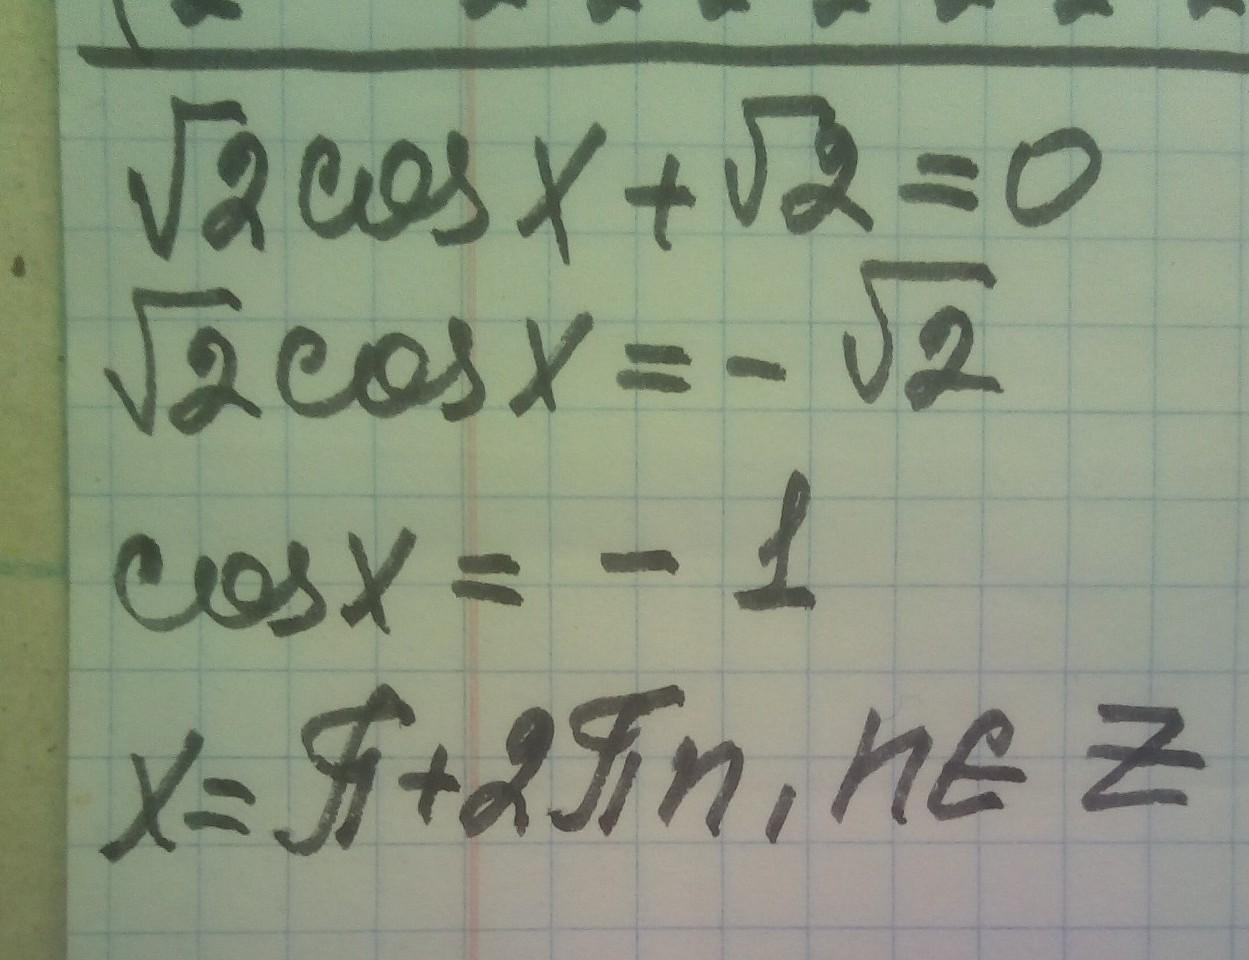 √2 cos x + √2 = 0
√2 cos x = - √2
cos x = - 1
x = π + 2πn, n ∈ Z